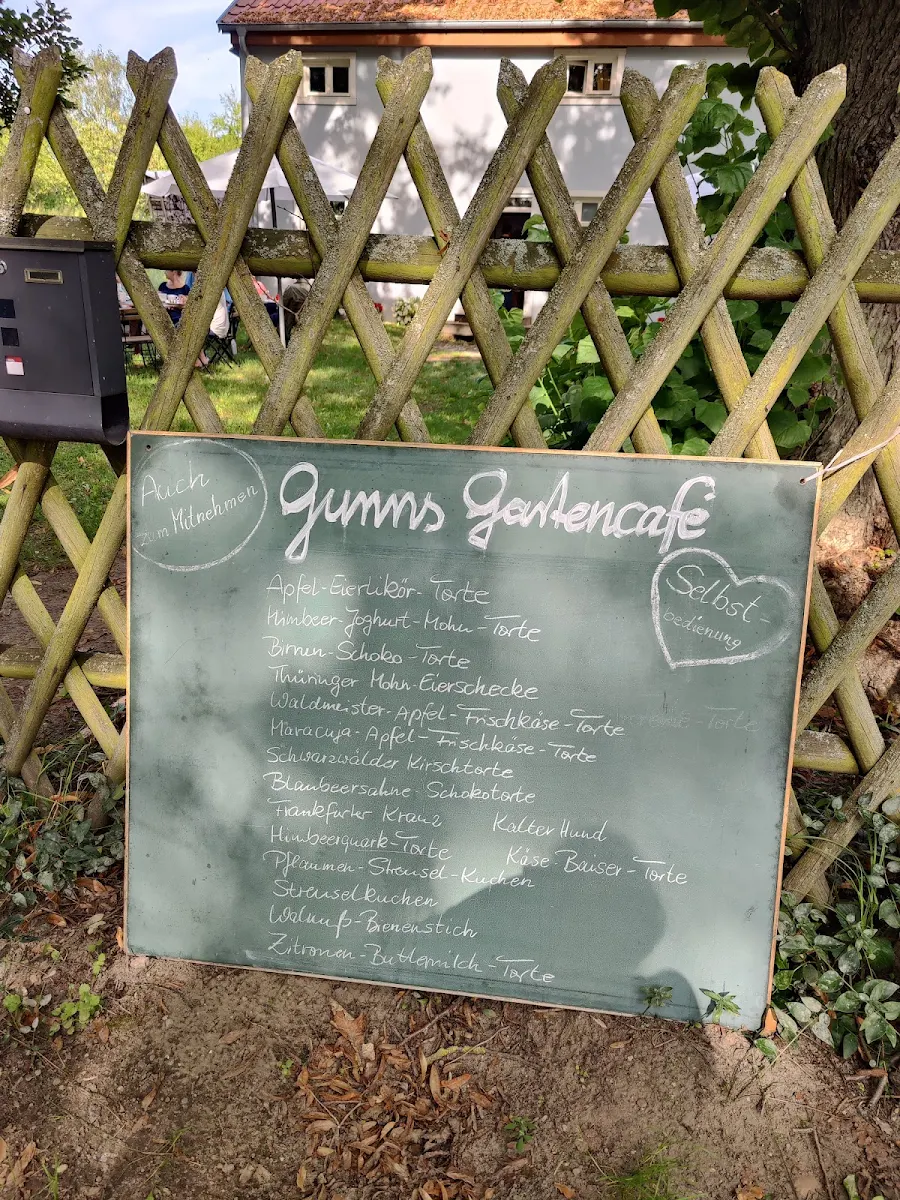 Auch
zum Mitnehmen
Gunns Gartencafé
Selbst-
bedienung
Apfel-Eierlikör-Torte
Himbeer-Joghurt-Mohn-Torte
Birnen-Schoko-Torte
Thüringer Mohn-Eierschecke
Waldmeister-Apfel-Frischkäse-Torte
Maracuja-Apfel-Frischkäse-Torte
Schwarzwälder Kirschtorte
Blaubeersahne-Schokotorte
Frankfurter Kranz
Kalter Hund
Himbeerquark-Torte
Käse-Baiser-Torte
Pflaumen-Streusel-Kuchen
Streuselkuchen
Walnuß-Bienenstich
Zitronen-Buttermilch-Torte